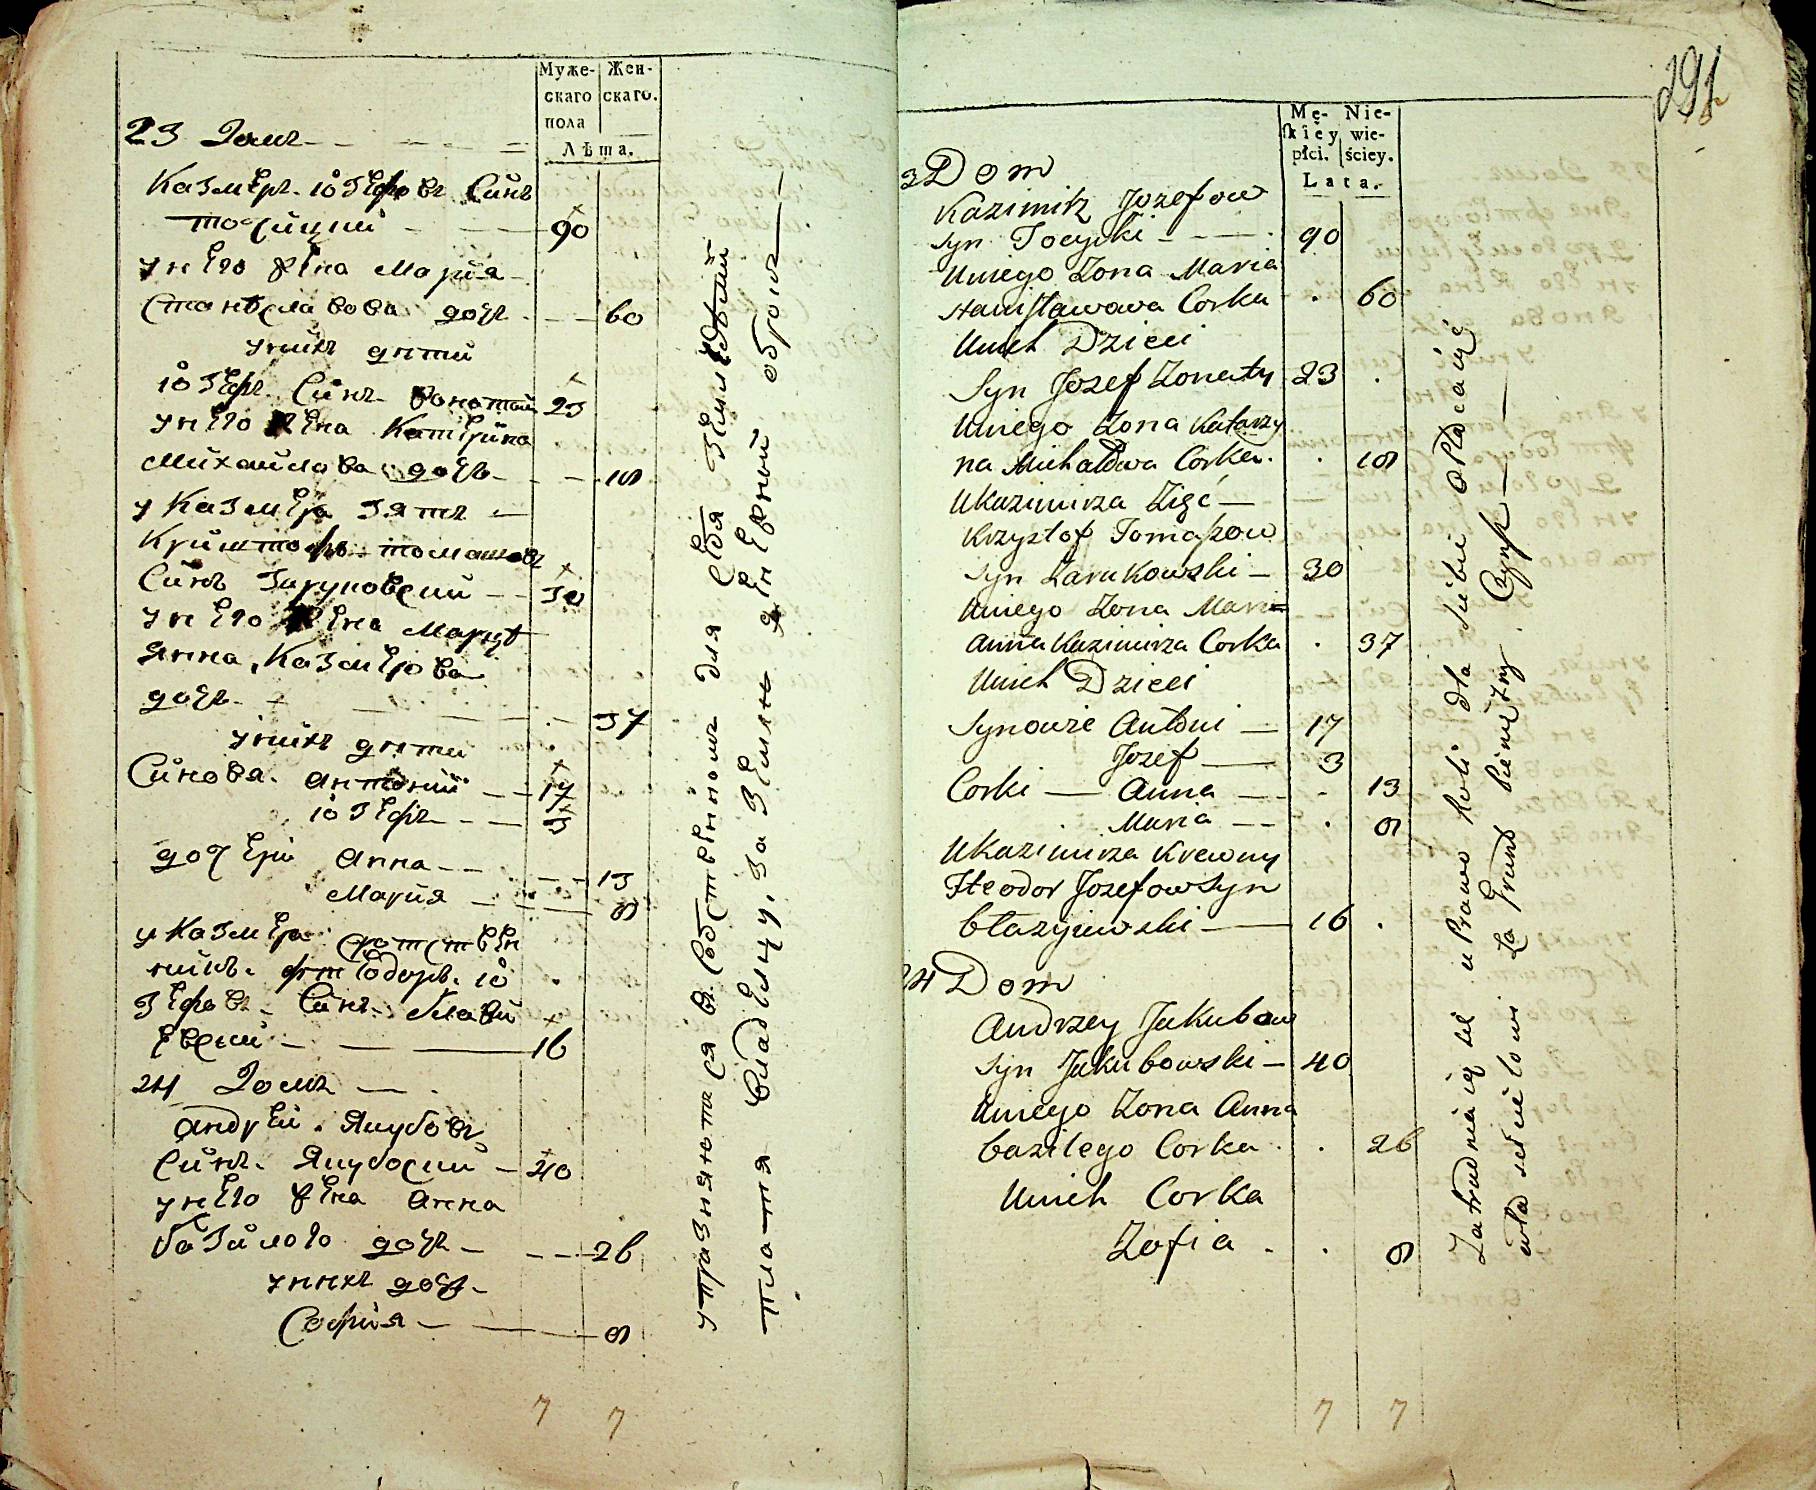 Муже- Жен-
скаго скаго.
пола
Лѣта.
23 Домъ
Казмеръ Іозефовъ Синъ
Точицкий 90
у него жена Мария
Станѣславова дочъ 60
у нихъ дѣти
Іозефъ Синъ жонатий 23
у него жена Катерина
Михайлова дочъ 18
у Казмера зять
Криштофъ Томашовъ
Синъ Заруковский 30
у него жена Мария
Анна, Казмерова
дочъ 37
у нихъ дѣти
Синовя Антоний 17
Іозефъ 3
дочери Анна 13
Мария 8
у Казмера сродствен
никъ Фтеодоръ Іо
зефовъ Синъ Блажи
евский 16
24 Домъ
Андрей Якубовъ
Синъ Якубоский 40
у него жена Анна
Базилого дочъ 26
у нихъ дочъ
София 8
7 7
упразняются въ собственномъ для себя земледелии
платя владелцу, за землю денежный оброкъ
291
Mę- Nie-
skiéy wie-
płci. ściey.
Lata.
3 Dom
Kazimirz Jozefow
Syn Tocycki 90
Uniego Zona Maria
Stanisławowa Corka 60
Unich Dzieci
Syn Jozef Zonaty 23
Uniego Zona Katarzy
na Michałowa Corka 18
U Kazimirza Zięć
Krzysztof Tomaszow
Syn Zarukowski 30
Uniego Zona Maria
Anna Kazimirza Corka 37
Unich Dzieci
Synowie Antoni 17
Jozef 3
Corki Anna 13
Maria 8
U Kazimirza Krewny
Fteodor Jozefow Syn
Błazyiewski 16
24 Dom
Andrzey Jakubow
Syn Jakubowski 40
Uniego Zona Anna
Bazilego Corka 26
Unich Corka
Zofia 8
7 7
Zatrudniaią się uprawą Roli dla siebie opłacaiąc
właścicielowi za Grunt pieniężny Czynsz